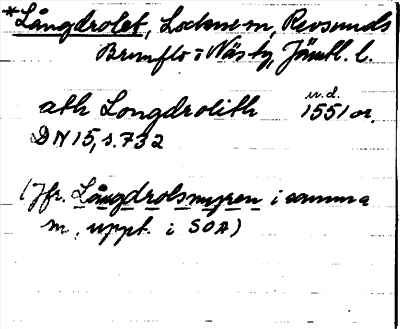 *Långdrolet, Lockne m, Revsunds
Brunflo o Näs tg, Jämtl. l.
ath Longdrolith
u.d.
1551 or.
DN 15, s. 732
(Jfr. Långdrolsmyren i samma
m, uppt. i SOA)